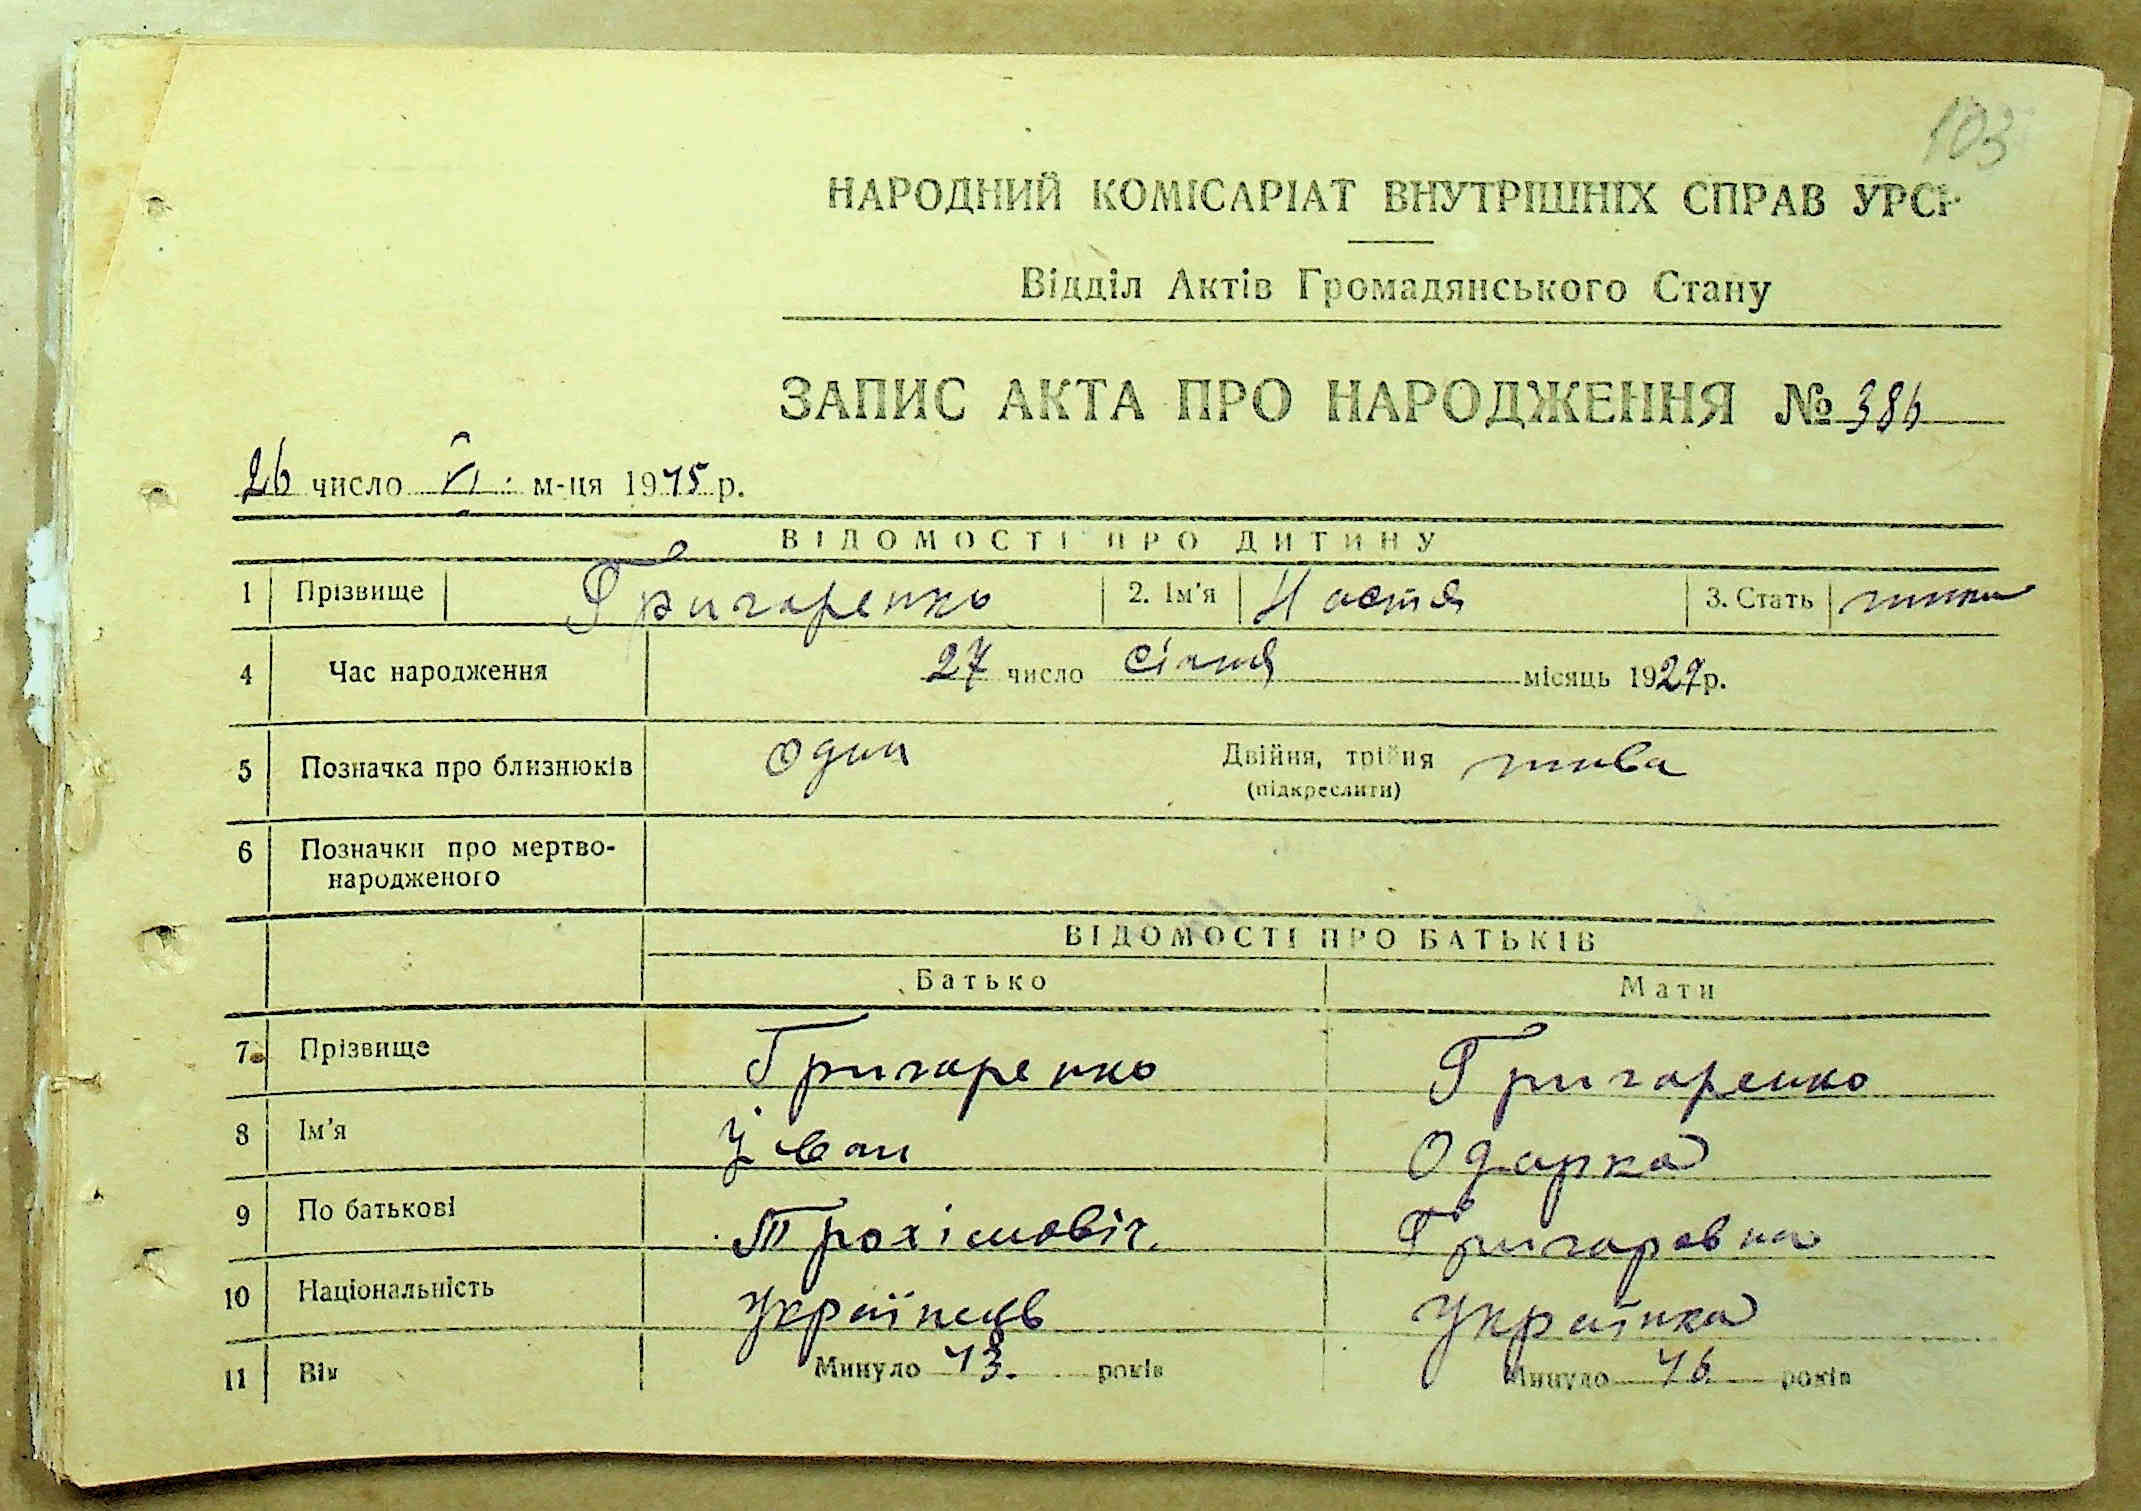 103
НАРОДНИЙ КОМІСАРІАТ ВНУТРІШНІХ СПРАВ УРСР
Відділ Актів Громадянського Стану
ЗАПИС АКТА ПРО НАРОДЖЕННЯ № 386
26 число VI м-ця 1945 р.
ВІДОМОСТІ ПРО ДИТИНУ
1 Прізвище Григоренко 2. Ім'я Настя 3. Стать жінка
4 Час народження 27 число січня місяць 1927 р.
5 Позначка про близнюків один Двійня, трійня жива
(підкреслити)
6 Позначки про мертво-
народженого
ВІДОМОСТІ ПРО БАТЬКІВ
Батько Мати
7 Прізвище Григоренко Григоренко
8 Ім'я Іван Одарка
9 По батькові Трохімовіч. Григоровна
10 Національність Українець Українка
11 Вік Минуло 43. років Минуло 46 років